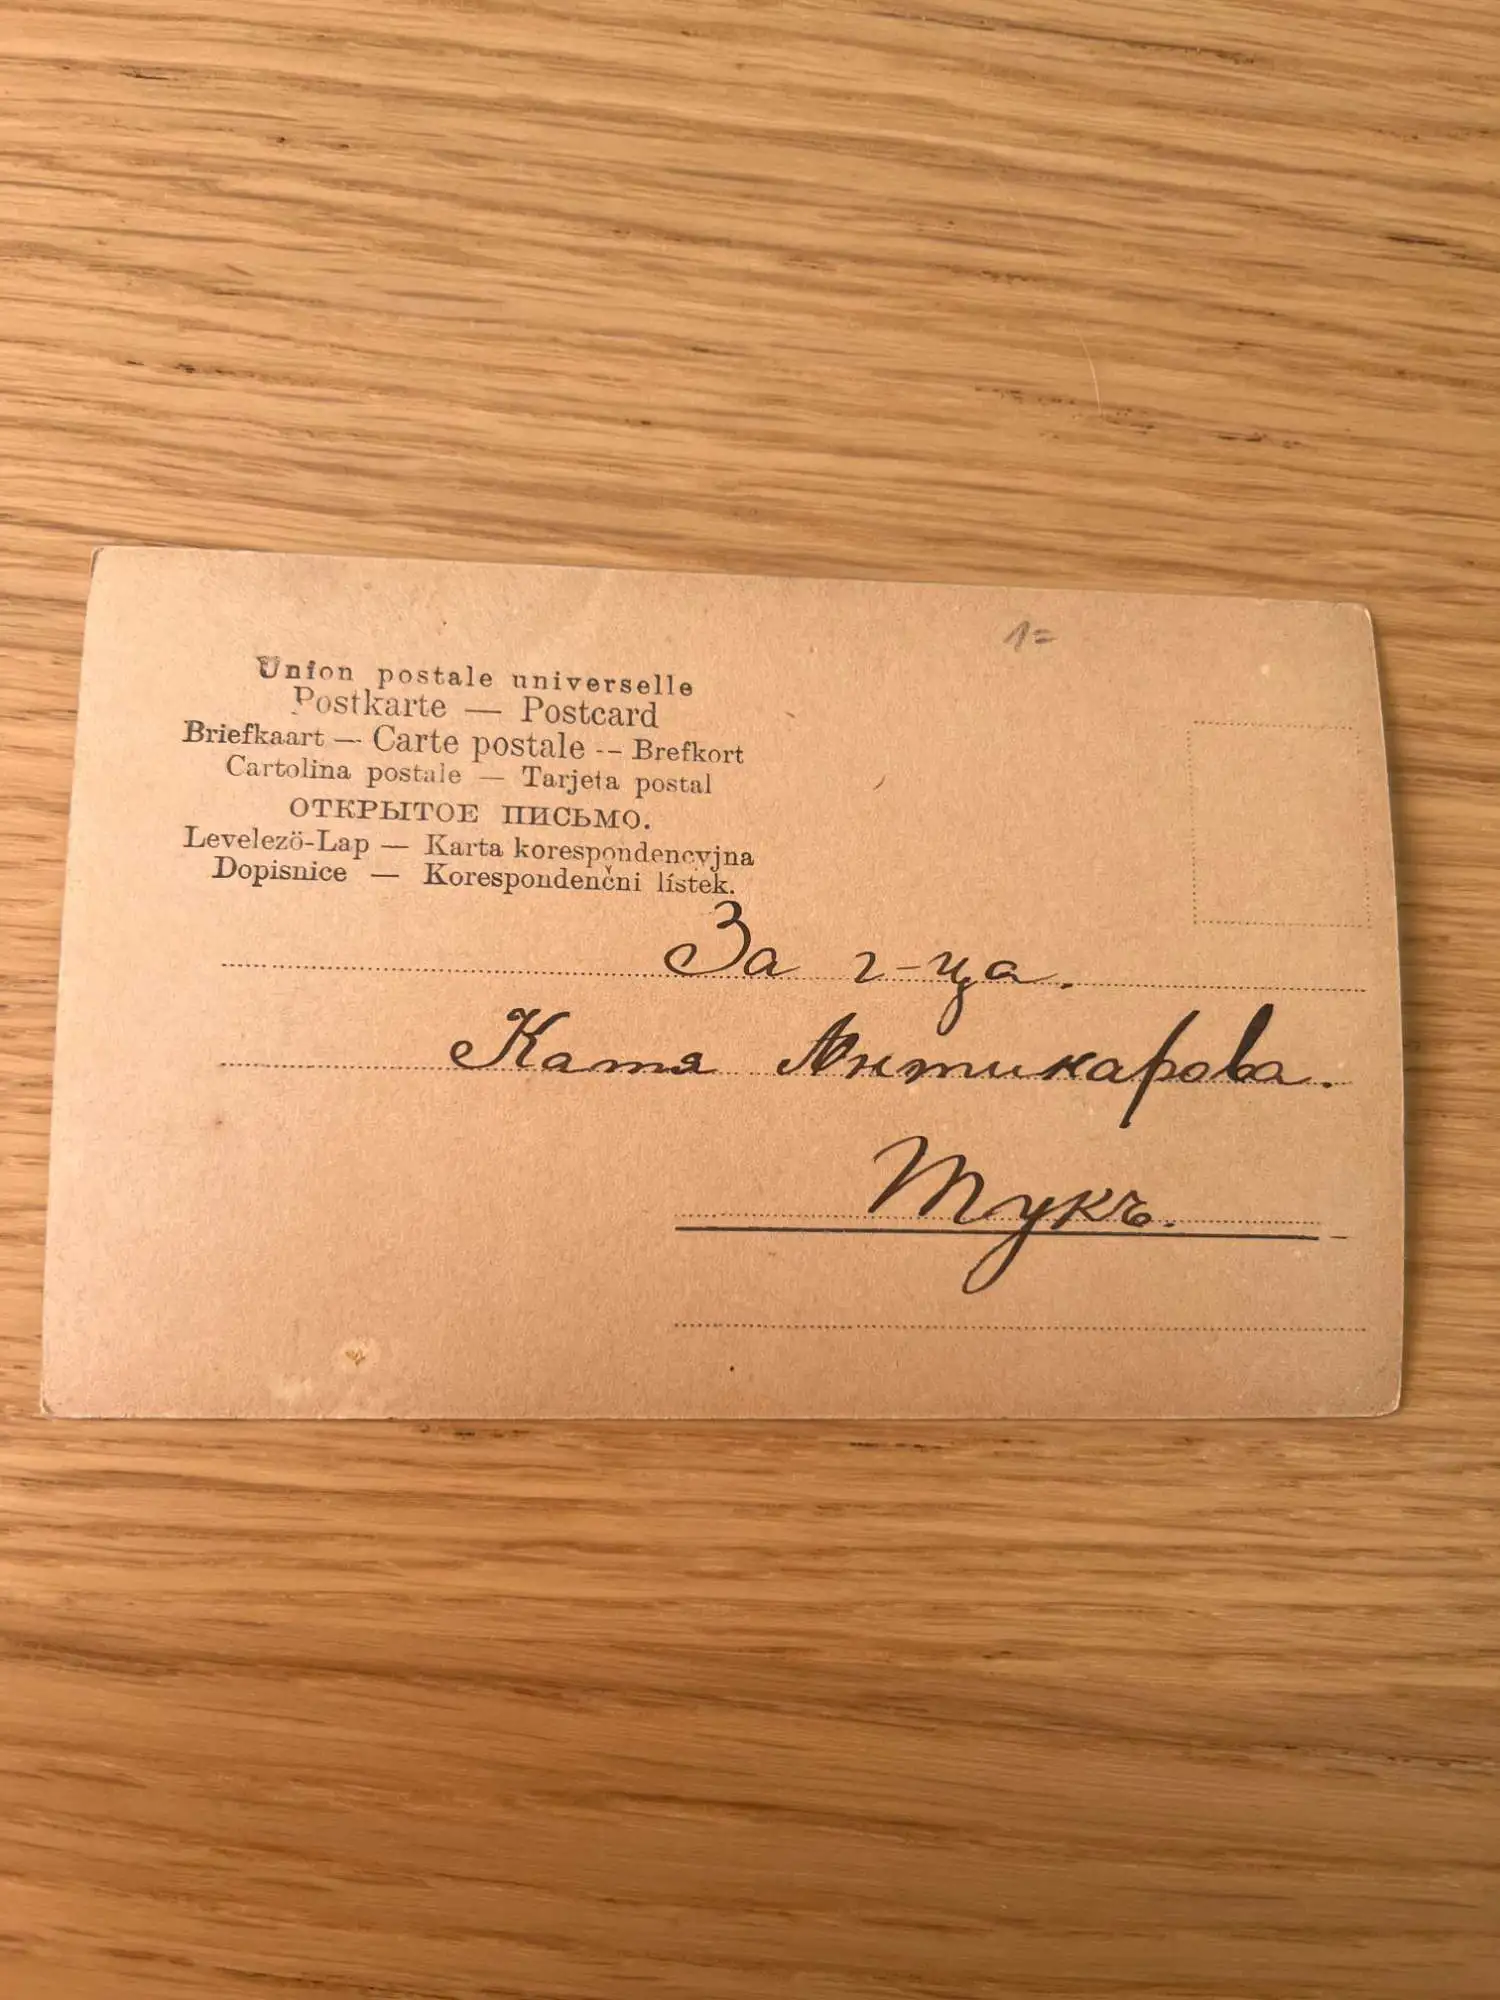 1=
Union postale universelle
Postkarte — Postcard
Briefkaart — Carte postale -- Brefkort
Cartolina postale — Tarjeta postal
ОТКРЫТОЕ ПИСЬМО.
Levelezö-Lap — Karta korespondencyjna
Dopisnice — Korespondenčni lístek.
За г-ца.
Катя Антикарова.
Тукъ.